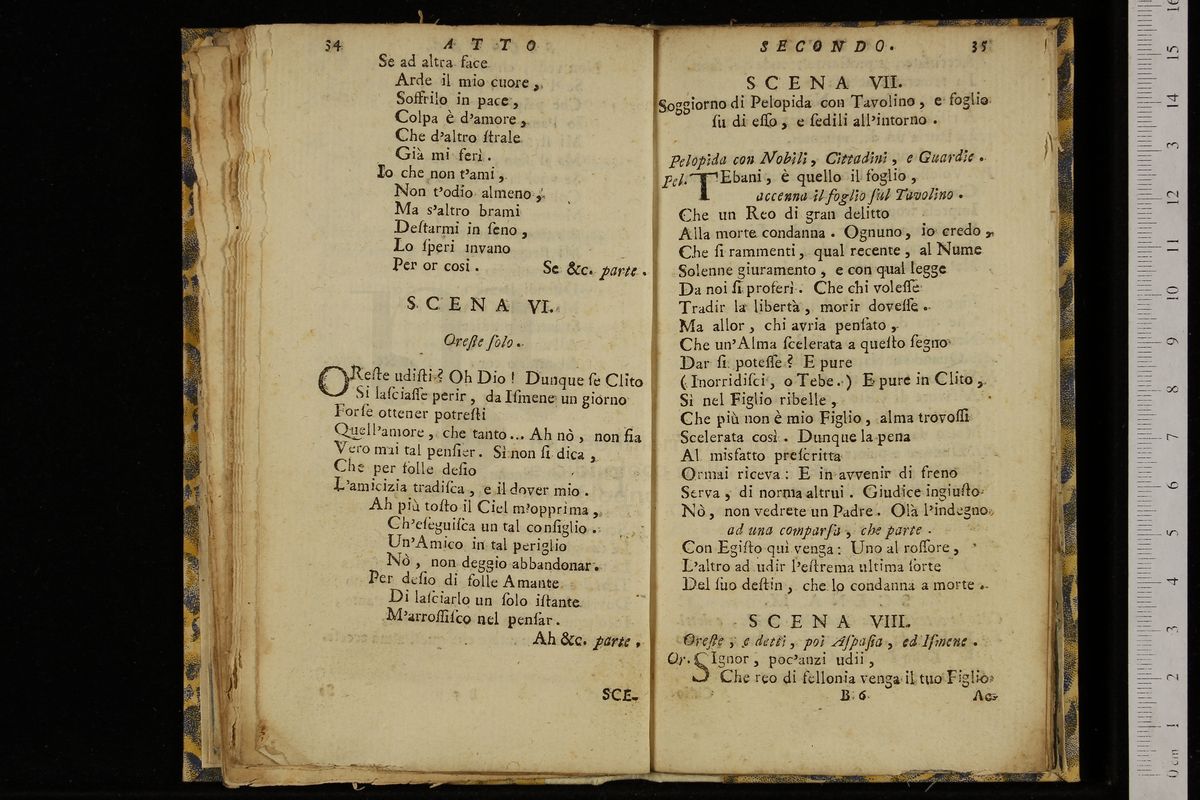 34 ATTO
Se ad altra face
Arde il mio cuore,
Soffrilo in pace,
Colpa è d'amore,
Che d'altro ſtrale
Già mi ferì.
Io che non t'ami,
Non t'odio almeno;
Ma s'altro brami
Deſtarmi in ſeno,
Lo ſperi invano
Per or cosi. Se &c. parte.
SCENA VI.
Oreſte ſolo.
OReſte udiſti? Oh Dio! Dunque ſe Clito
Si laſciaſſe perir, da Iſmene un giorno
Forſe ottener potreſti
Quell'amore, che tanto... Ah nò, non ſia
Vero mai tal penſier. Si non ſi dica,
Che per folle deſio
L'amicizia tradiſca, e il dover mio.
Ah più toſto il Ciel m'opprima,
Ch'eſeguiſca un tal conſiglio.
Un'Amico in tal periglio
Nò, non deggio abbandonar.
Per deſio di folle Amante
Di laſciarlo un ſolo iſtante
M'arroſſiſco nel penſar.
Ah &c. parte.
SCE-
SECONDO. 35
SCENA VII.
Soggiorno di Pelopida con Tavolino, e foglio
ſu di eſſo, e ſedili all'intorno.
Pelopida con Nobili, Cittadini, e Guardie.
Pel. TEbani, è quello il foglio,
accenna il foglio ſul Tavolino.
Che un Reo di gran delitto
Alla morte condanna. Ognuno, io credo,
Che ſi rammenti, qual recente, al Nume
Solenne giuramento, e con qual legge
Da noi ſi proferì. Che chi voleſſe
Tradir la libertà, morir doveſſe.
Ma allor, chi avria penſato,
Che un'Alma ſcelerata a queſto ſegno
Dar ſi poteſſe? E pure
(Inorridiſci, o Tebe.) E pure in Clito,
Sì nel Figlio ribelle,
Che più non è mio Figlio, alma trovoſſi
Scelerata così. Dunque la pena
Al misfatto preſcritta
Ormai riceva: E in avvenir di freno
Serva, di norma altrui. Giudice ingiuſto
Nò, non vedrete un Padre. Olà l'indegno
ad una comparſa, che parte.
Con Egiſto qui venga: Uno al roſſore,
L'altro ad udir l'eſtrema ultima ſorte
Del ſuo deſtin, che lo condanna a morte.
SCENA VIII.
Oreſte, e detti, poi Aſpaſia, ed Iſmene.
Or. SIgnor, poc'anzi udii,
Che reo di fellonia venga il tuo Figlio
B 6 Ac-
0 cm 1 2 3 4 5 6 7 8 9 10 11 12 3 14 15 16